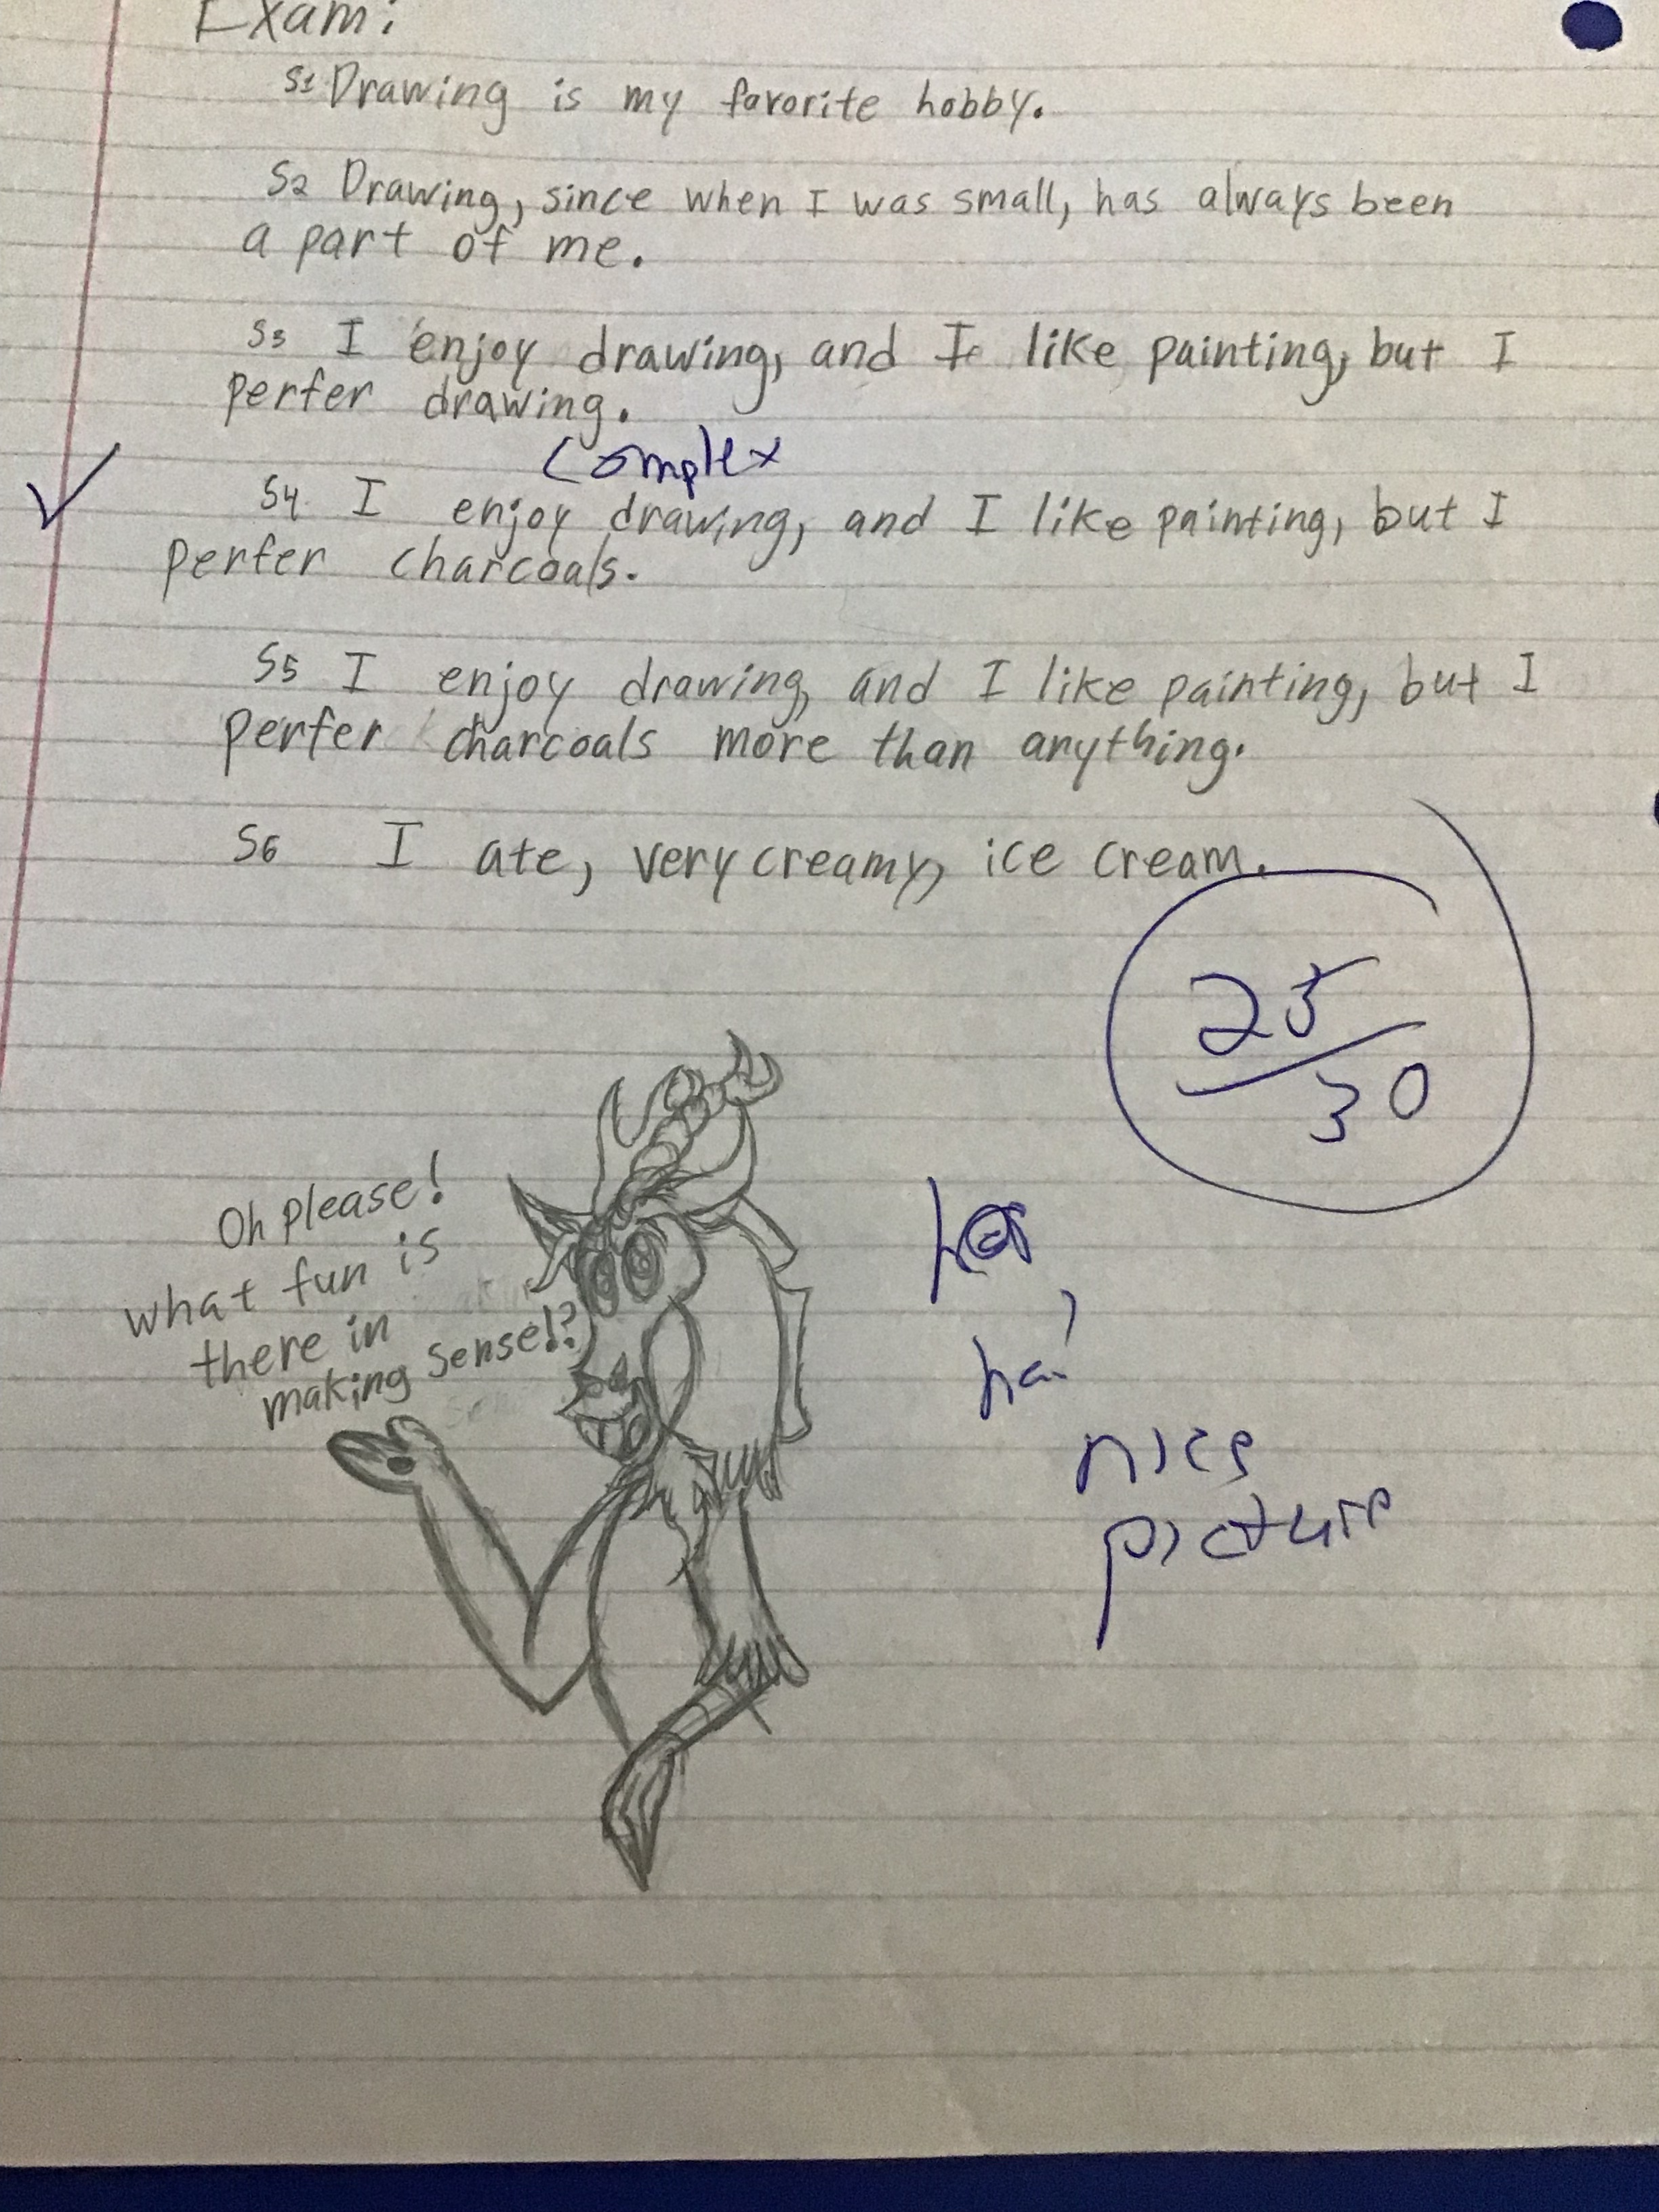 Exam:
S1 Drawing is my favorite hobby.
S2 Drawing, since when I was small, has always been
a part of me.
S3 I enjoy drawing, and I like painting, but I
perfer drawing.
Complex
S4 I enjoy drawing, and I like painting, but I
perfer charcoals.
S5 I enjoy drawing, and I like painting, but I
perfer charcoals more than anything.
S6 I ate, very creamy, ice cream.
25/30
Oh please!
what fun is
there in
making sense!?
ha,
ha!
nice
picture